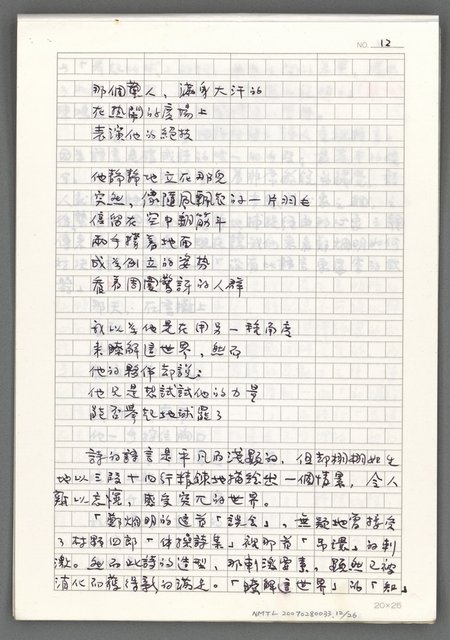 NO. 12
那個華人，滿身大汗的
在熱鬧的廣場上
表演他的絕技
他靜靜地立在那兒
突然，像隨風飄起的一片羽毛
停留在空中翻筋斗
兩手撐着地面
成為倒立的姿勢
看着周圍驚訝的人群
我以為他是在用另一種角度
來瞭解這世界，然而
他的夥伴却說：
他只是想試試他的力量
能否舉起地球罷了
詩的語言是平凡而淺顯的，但却栩栩如生
地以三段十四行精鍊地描繪出一個情景，令人
難以忘懷，感受突兀的世界。
「鄭烱明的這首「誤會」，無疑地曾接受
了村野四郎「體操詩集」裡那首「吊環」的刺
激。然而此詩的造型，那刺激要素，顯然已被
消化而獲得新的滿足。「瞭解這世界」的「知」
20×25
NMTL 20070280033, 12/26